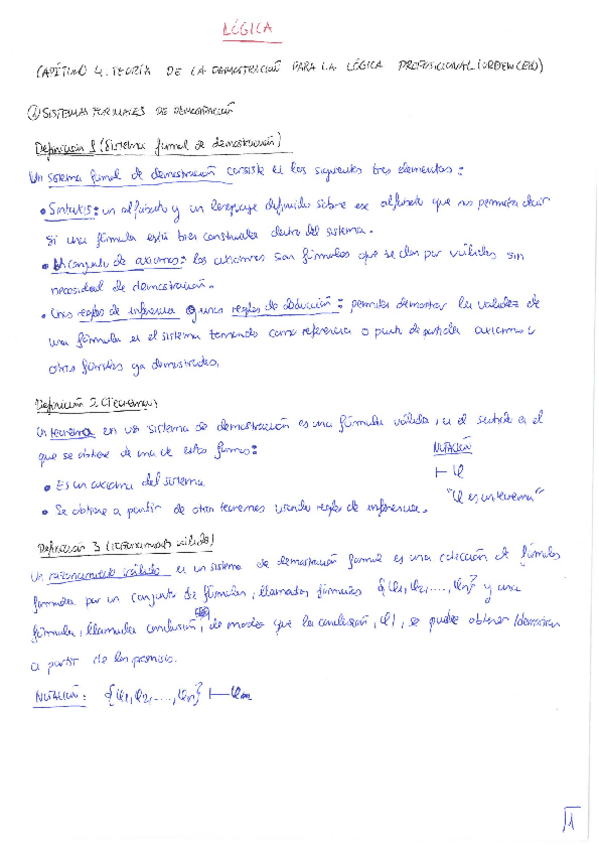 LÓGICA
CAPÍTULO 4. TEORÍA DE LA DEMOSTRACIÓN PARA LA LÓGICA PROPOSICIONAL (ORDEN CERO)
① SISTEMAS FORMALES DE DEMOSTRACIÓN
Definición 1 (Sistema formal de demostración)
Un sistema formal de demostración consiste en los siguientes tres elementos:
• Sintaxis: un alfabeto y un lenguaje definidos sobre ese alfabeto que nos permita decir
si una fórmula está bien construida dentro del sistema.
• Un conjunto de axiomas: los axiomas son fórmulas que se dan por válidas sin
necesidad de demostración.
• Unas reglas de inferencia o unas reglas de deducción: permiten demostrar la validez de
una fórmula en el sistema tomando como referencia o punto de partida axiomas u
otras fórmulas ya demostradas.
Definición 2 (Teorema)
Un teorema en un sistema de demostración es una fórmula válida, en el sentido en el
que se obtiene de una de estas formas:
NOTACIÓN
⊢ φ
"φ es un teorema"
• Es un axioma del sistema
• Se obtiene a partir de otros teoremas usando reglas de inferencia.
Definición 3 (razonamiento válido)
Un razonamiento válido en un sistema de demostración formal es una colección de fórmulas
formada por un conjunto de fórmulas, llamadas fórmulas {φ1, φ2, ..., φn} y una
fórmula, llamada conclusión, de modo que la conclusión, φ, se puede obtener
a partir de las premisas.
NOTACIÓN: {φ1, φ2, ..., φn} ⊢ φ
1